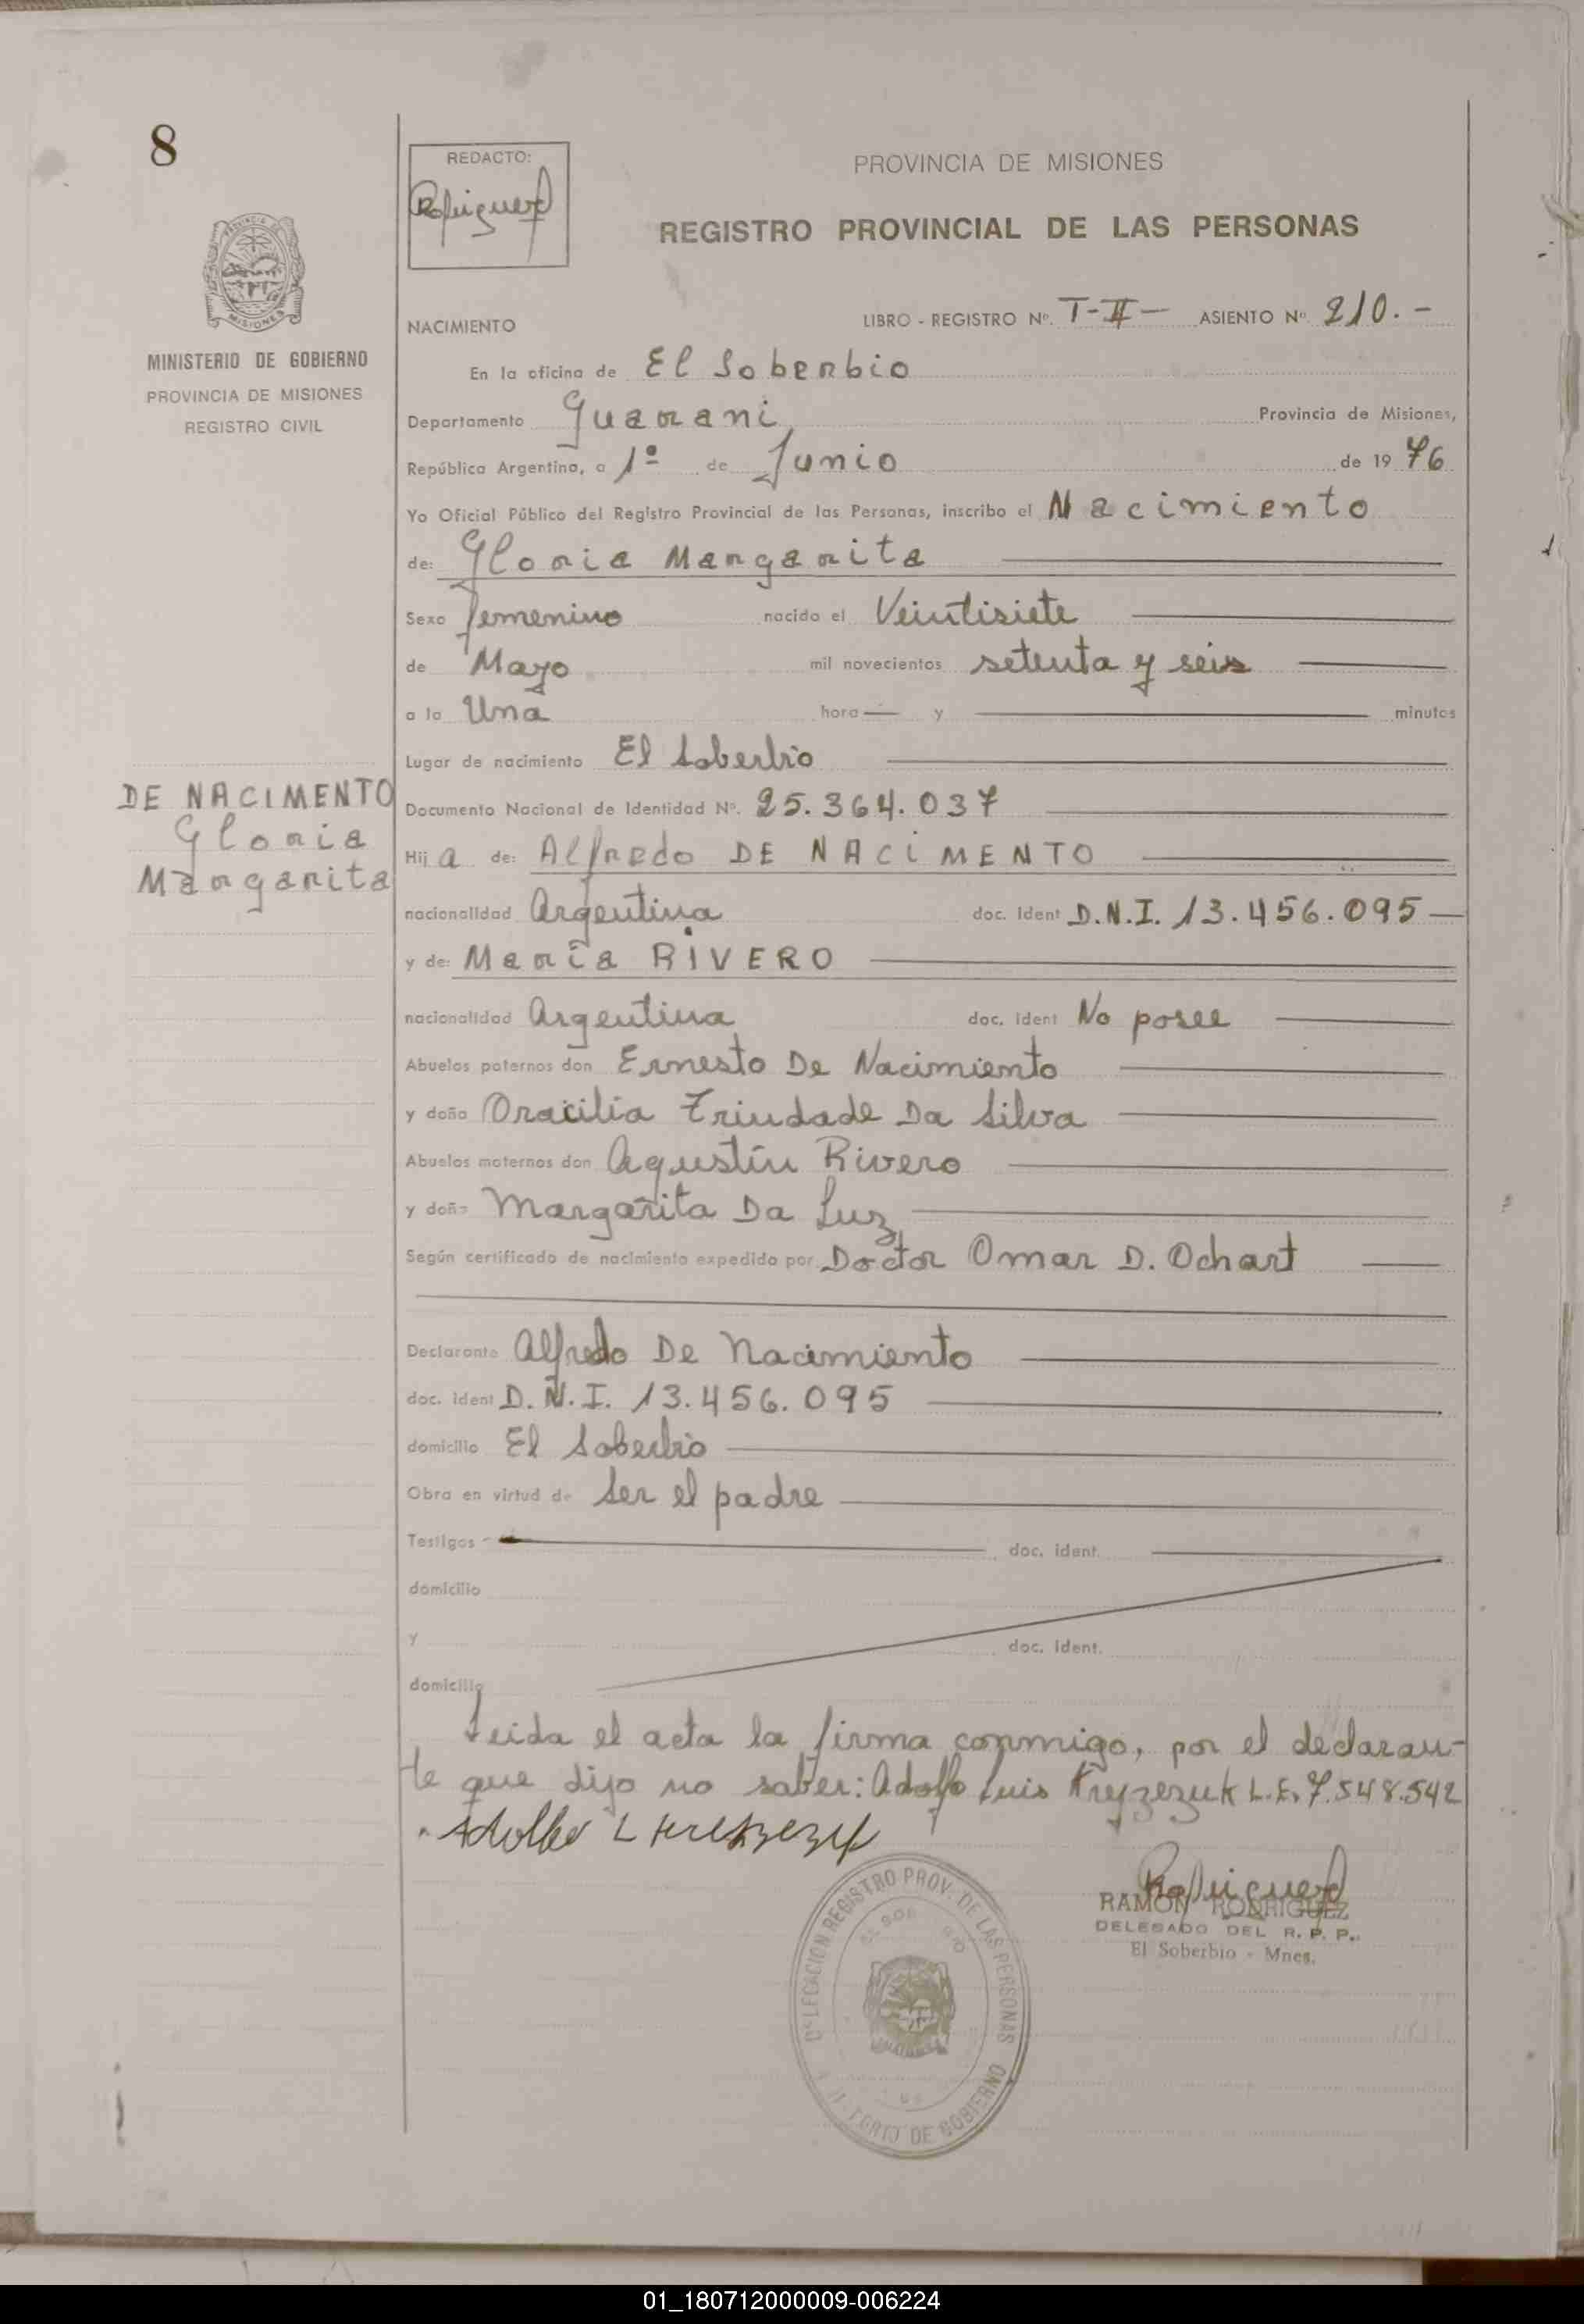 8
REDACTO:
Rodriguez
PROVINCIA DE MISIONES
REGISTRO PROVINCIAL DE LAS PERSONAS
MISIONES
MINISTERIO DE GOBIERNO
PROVINCIA DE MISIONES
REGISTRO CIVIL
NACIMIENTO LIBRO - REGISTRO Nº. T-II- ASIENTO Nº 210.-
En la oficina de El Soberbio
Departamento Guarani Provincia de Misiones,
República Argentina, a 1º de Junio de 1976
Yo Oficial Público del Registro Provincial de las Personas, inscribo el Nacimiento
de: Gloria Margarita
Sexo femenino nacido el Veintisiete
de Mayo mil novecientos setenta y seis
a la Una hora y minutos
Lugar de nacimiento El Soberbio
DE NACIMENTO
Gloria
Margarita
Documento Nacional de Identidad Nº. 25.364.037
Hij a de: Alfredo DE NACIMENTO
nacionalidad Argentina doc. Ident D.N.I. 13.456.095
y de: María RIVERO
nacionalidad Argentina doc. Ident No posee
Abuelos paternos don Ernesto De Nacimiento
y doña Oracilia Trindade Da Silva
Abuelos maternos don Agustín Rivero
y doña Margarita Da Luz
Según certificado de nacimiento expedido por Doctor Omar D. Ochart
Declarante Alfredo De Nacimiento
doc. ident D.N.I. 13.456.095
domicilio El Soberbio
Obra en virtud de Ser el padre
Testigos doc. ident.
domicilio
y doc. ident.
domicilio
Leida el acta la firma conmigo, por el declaran-
te que dijo no saber: Adolfo Luis Kryzezuk L.E. 7.548.542
Adolfo L
Rodriguez
RAMON RODRIGUEZ
DELEGADO DEL R. P. P.
El Soberbio - Mnes.
DELEGACION REGISTRO PROV. DE LAS PERSONAS
DE GOBIERNO
01_180712000009-006224